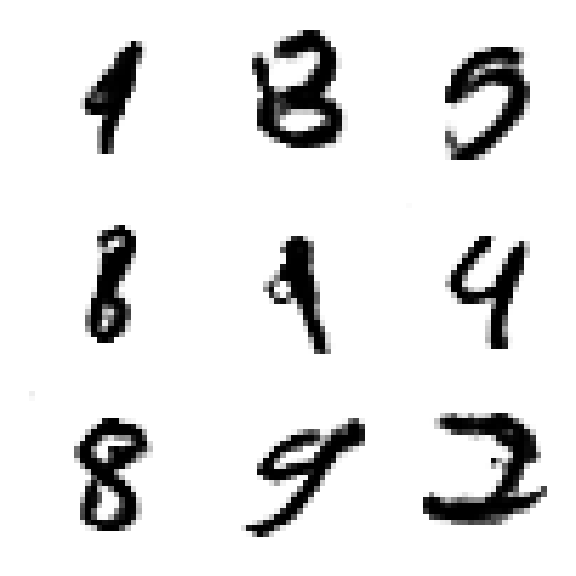 4 8 5
8 9 4
8 9 2